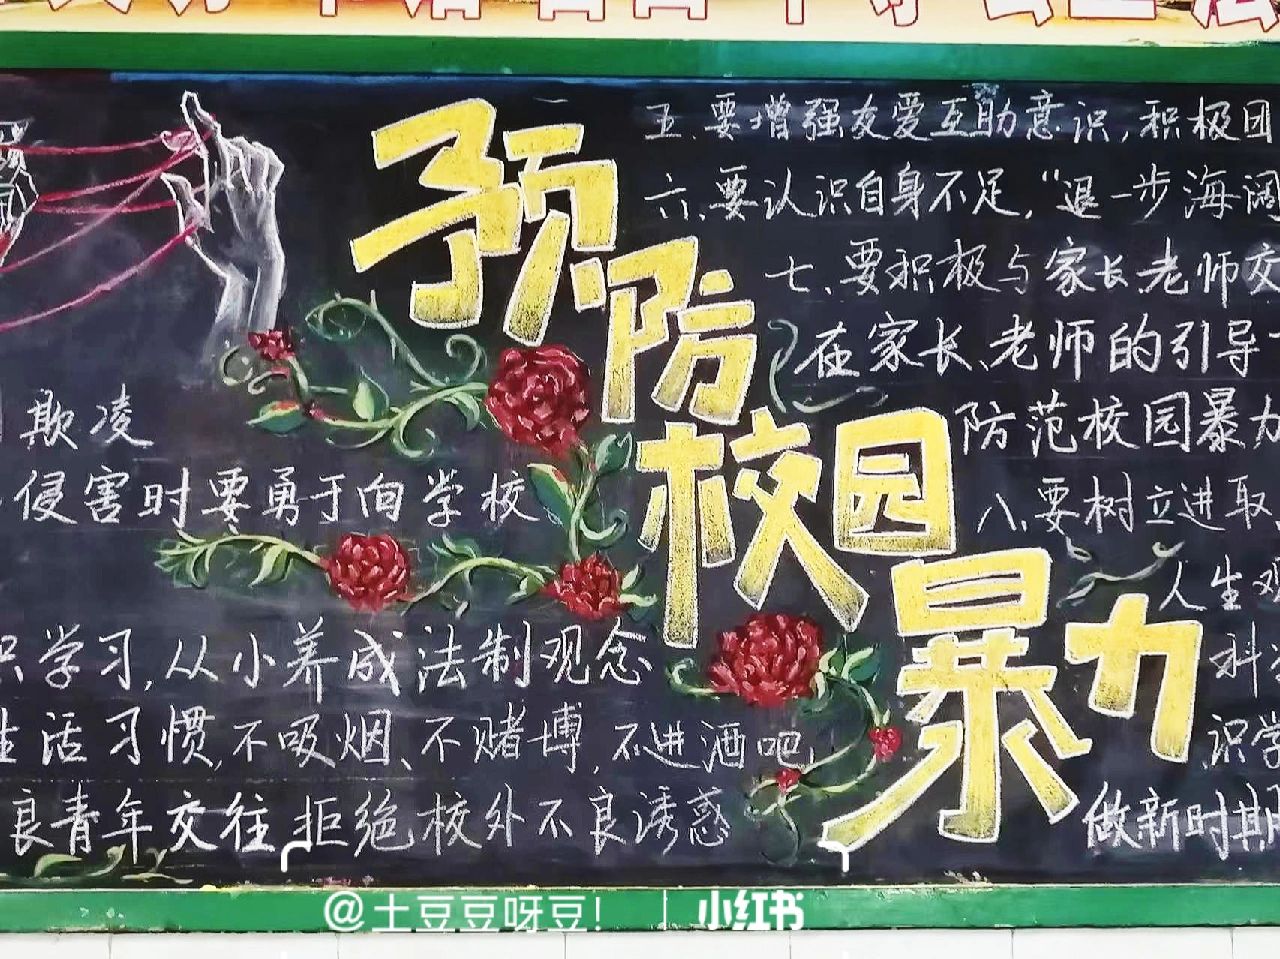 预防校园暴力
欺凌
侵害时要勇于向学校
识学习,从小养成法制观念
生活习惯,不吸烟、不赌博,不进酒吧,
良青年交往,拒绝校外不良诱惑
五、要增强友爱互助意识,积极团
六、要认识自身不足,“退一步海阔
七、要积极与家长、老师交
在家长、老师的引导下
防范校园暴力
八、要树立进取、
人生观
科
识学
做新时期
@土豆豆呀豆! | 小红书